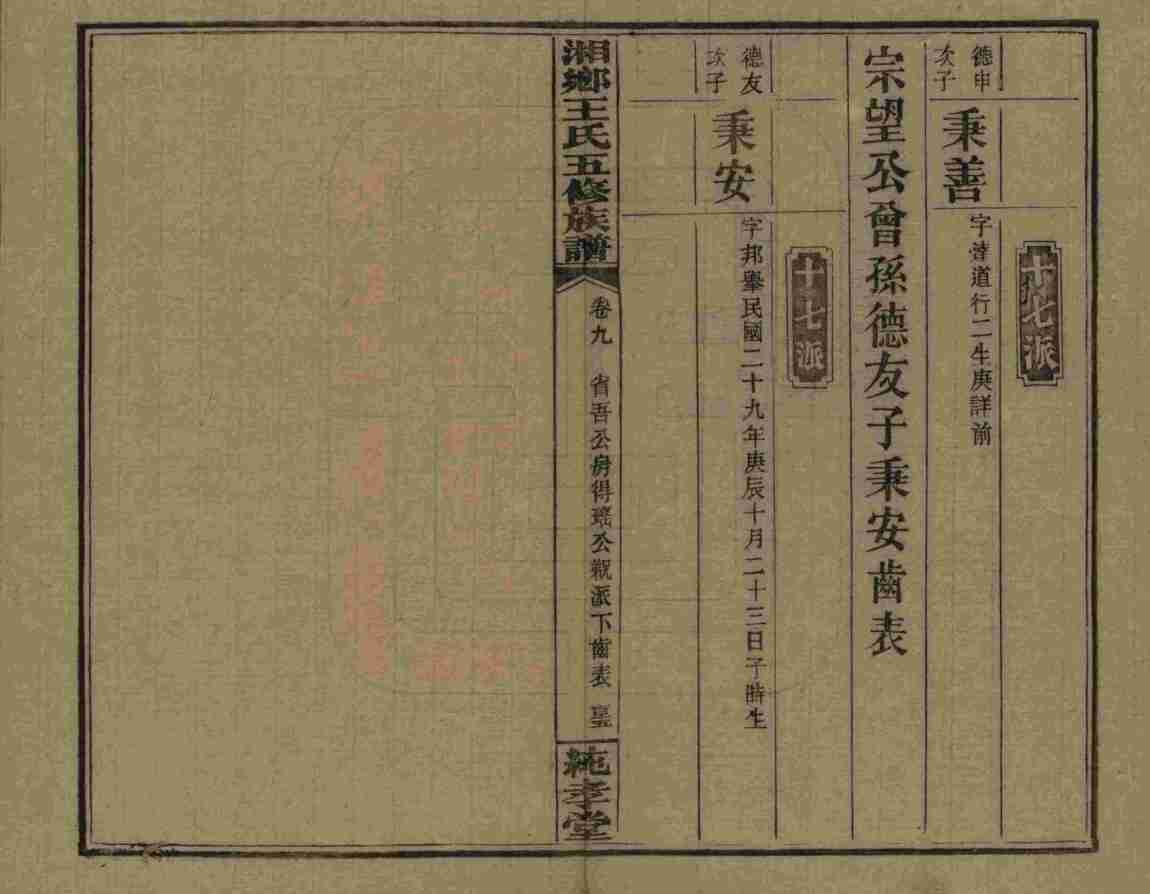 十七派
德申
次子
秉善
字濬道行二生庚詳前
宗望公曾孫德友子秉安齒表
十七派
德友
次子
秉安
字邦舉民國二十九年庚辰十月二十三日子時生
湘鄉王氏五修族譜
卷九
省吾公房得瑤公親派下齒表
純孝堂